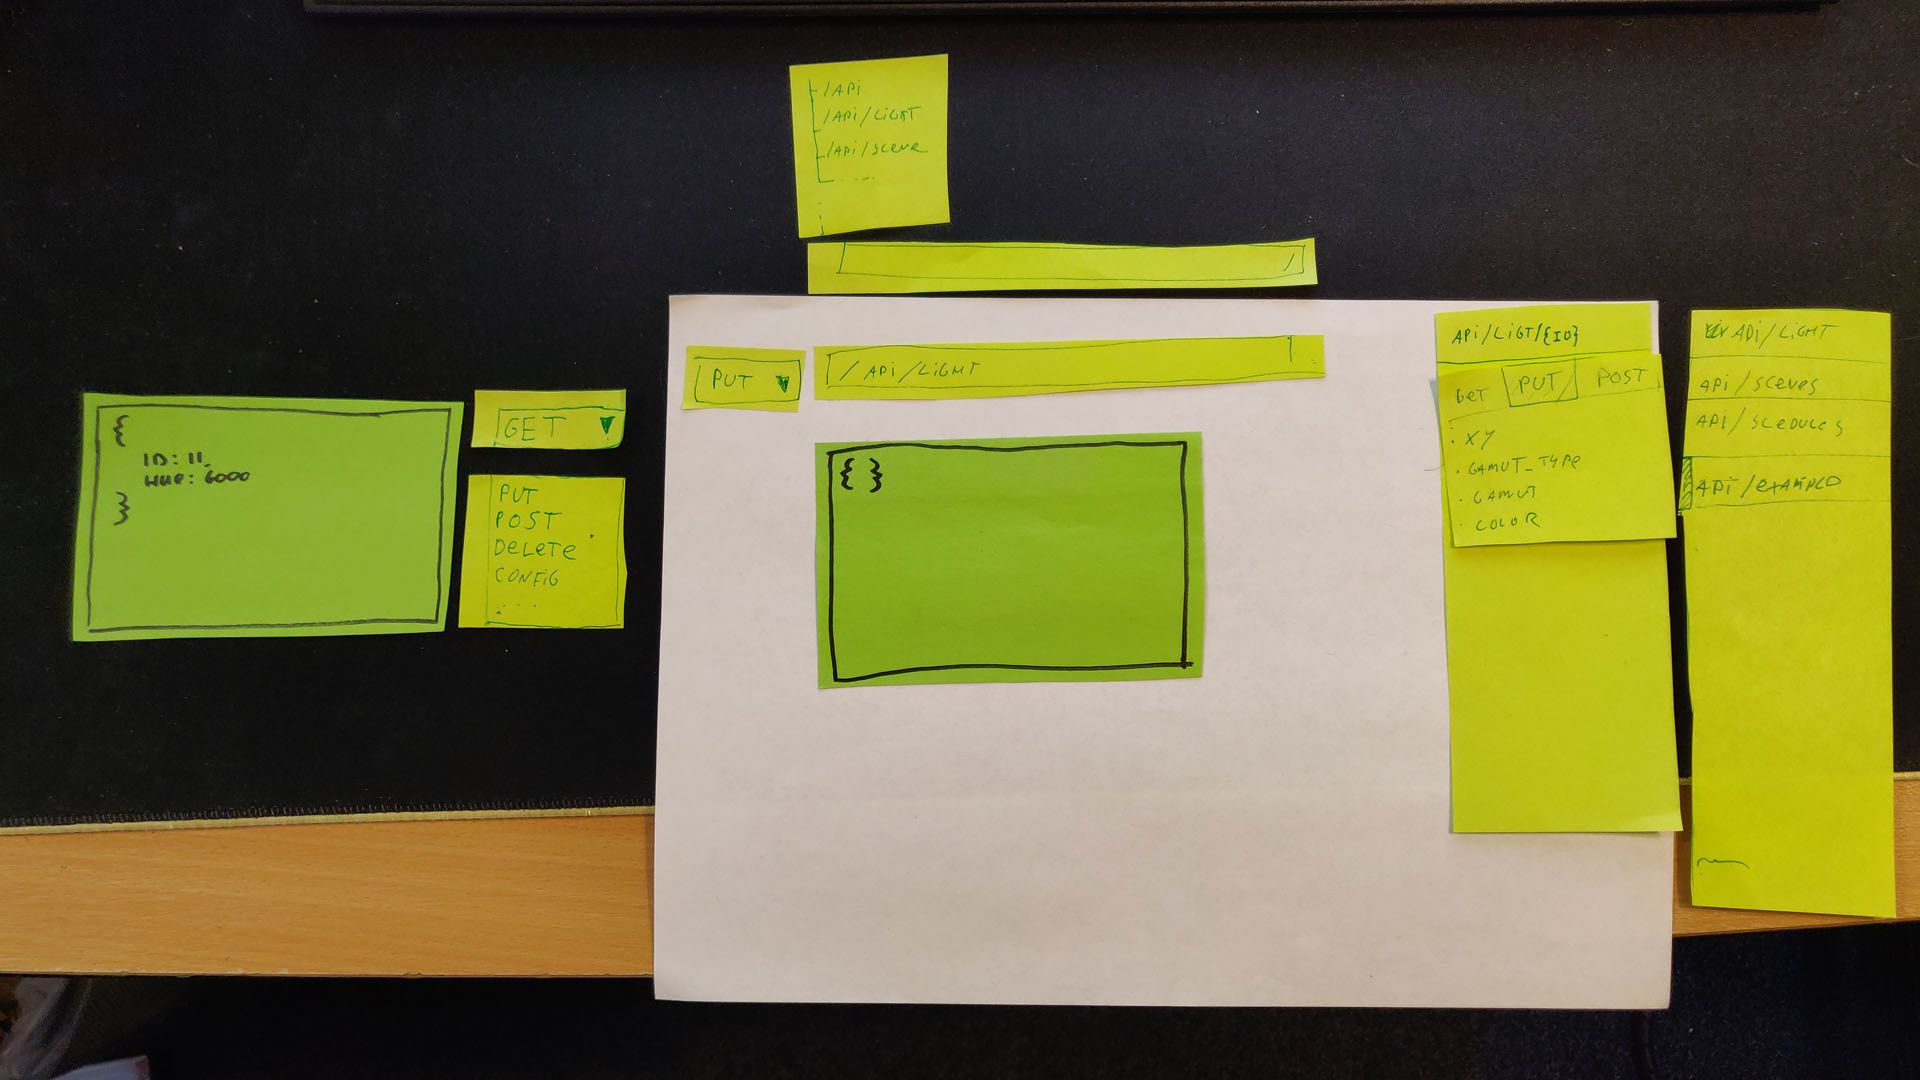 /API
/API/LIGHT
/API/SCENE
....
/
{
ID: 11,
HUE: 6000
}
GET ▼
PUT
POST
DELETE
CONFIG
....
PUT ▼
/ API/LIGHT
{ }
API/LIGT/{ID}
GET PUT POST
· XY
· GAMUT_TYPE
· GAMUT
· COLOR
API/LIGHT
API/SCENES
API/SCEDULES